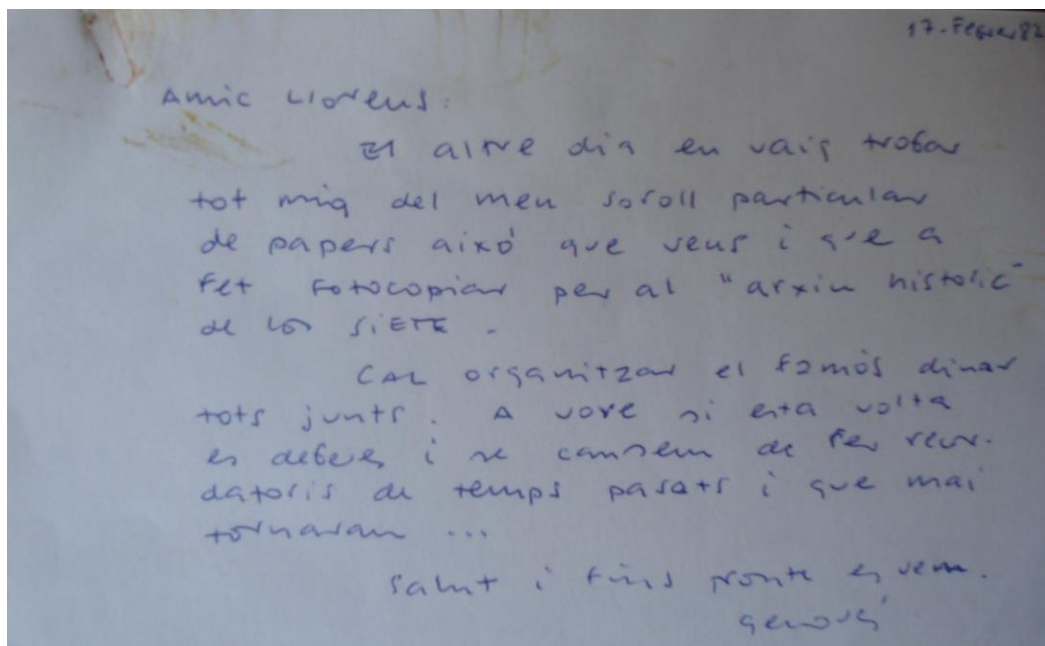 17-Febrer 82
Amic Llorens:
El altre dia en vaig trobar
tot mig del meu soroll particular
de papers aixó que veus i que a
fet fotocopiar per al "arxiu historic"
de los SIETE.
CAL organitzar el famós dinar
tots junts. A vore si esta volta
es deberes i se cansem de fer recor-
datoris de temps pasats i que mai
tornaran ...
Salut i fins pronte es vem.
genovés